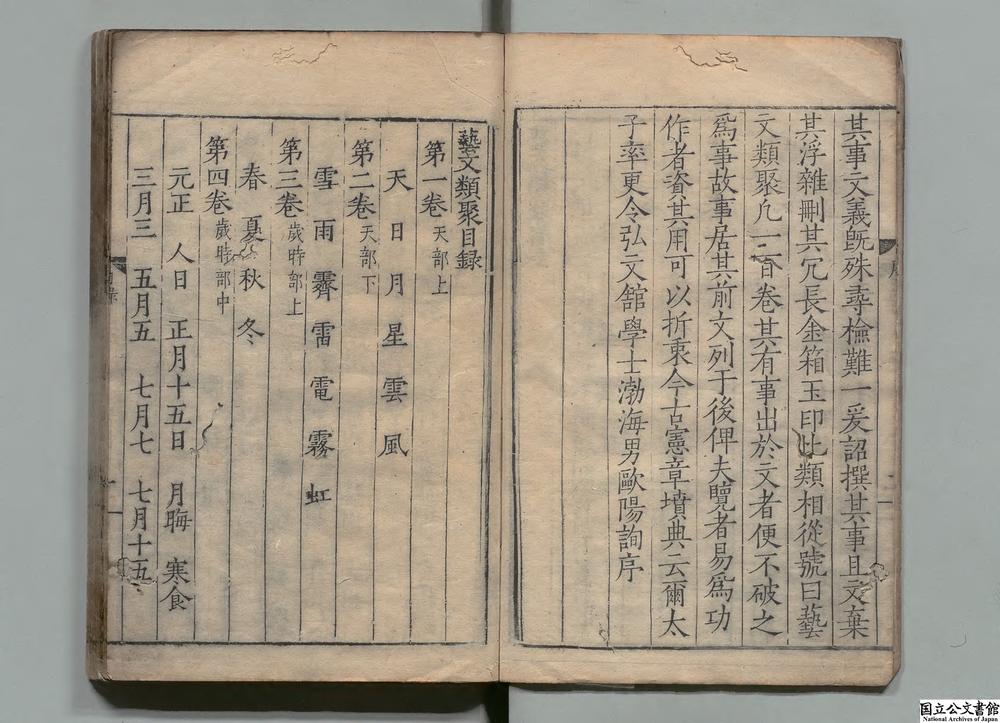 其事文義既殊尋檢難一爰詔撰其事且文棄
其浮雜刪其冗長金箱玉印比類相從號曰藝
文類聚凢一百卷其有事出於文者便不破之
爲事故事居其前文列于後俾夫覽者易爲功
作者資其用可以折衷今古憲章墳典云爾太
子率更令弘文舘學士渤海男歐陽詢序
藝文類聚目録
第一卷 天部上
天 日 月 星 雲 風
第二卷 天部下
雪 雨 霽 雷 電 霧 虹
第三卷 歲時部上
春 夏 秋 冬
第四卷 歲時部中
元正 人日 正月十五日 月晦 寒食
三月三 五月五 七月七 七月十五
国立公文書館
National Archives of Japan